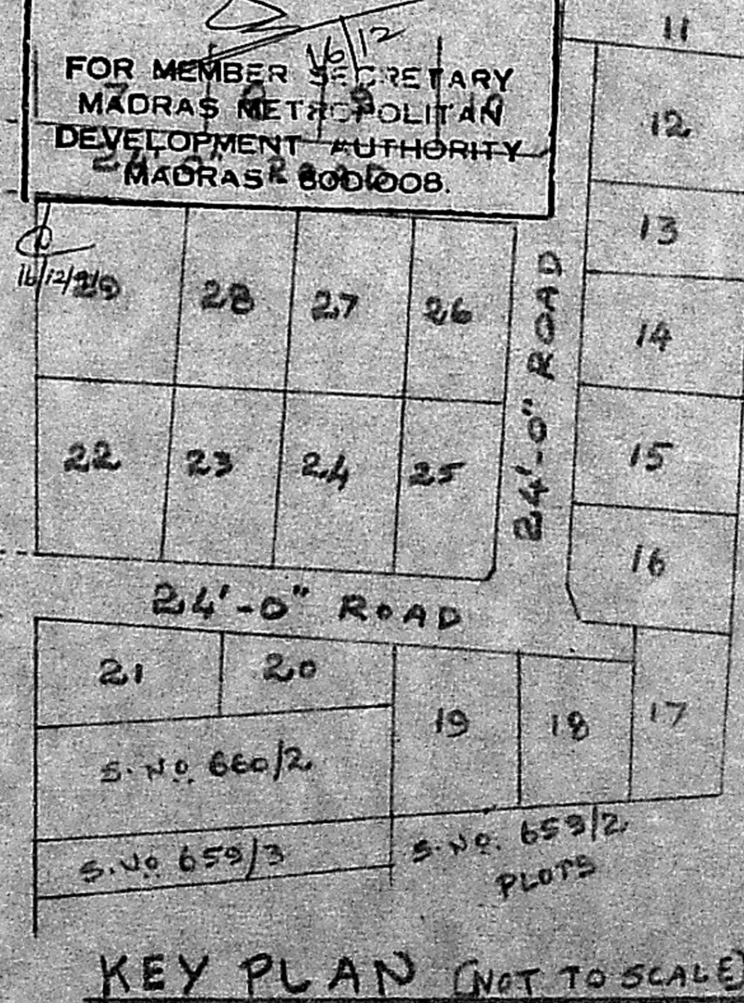 11
16/12
FOR MEMBER SECRETARY
MADRAS METROPOLITAN
DEVELOPMENT AUTHORITY
MADRAS - 600 008.
12
13
14
15
16
16/12/
29
28
27
26
22
23
24
25
24'-0" ROAD
24'-0" ROAD
21
20
19
18
17
S. NO. 660/2
S. NO 659/3
S. NO. 659/2
PLOTS
KEY PLAN (NOT TO SCALE)